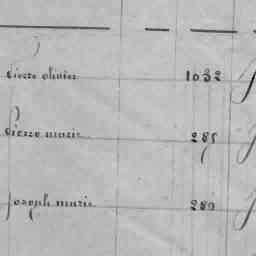 Pierre olivier 1032
Pierre marie 285
Joseph marie 280